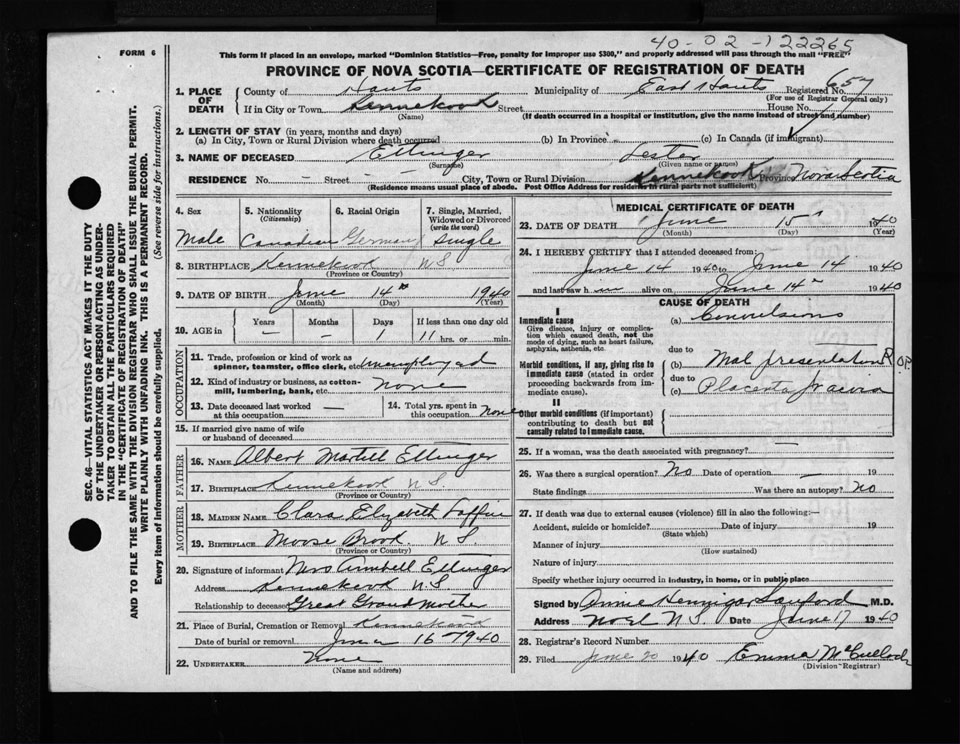 40-02-122265
FORM 6
This form if placed in an envelope, marked "Dominion Statistics—Free, penalty for improper use $300," and properly addressed will pass through the mail "FREE"
PROVINCE OF NOVA SCOTIA—CERTIFICATE OF REGISTRATION OF DEATH
1. PLACE OF DEATH
County of Hants Municipality of East Hants Registered No. 657
(For use of Registrar General only)
If in City or Town Kennekook Street House No.
(Name) (If death occurred in a hospital or institution, give the name instead of street and number)
2. LENGTH OF STAY (in years, months and days)
(a) In City, Town or Rural Division where death occurred (b) In Province (c) In Canada (if immigrant)
3. NAME OF DECEASED Ettinger Lester
(Surname) (Given name or names)
RESIDENCE No. — Street — City, Town or Rural Division Kennekook Province Nova Scotia
(Residence means usual place of abode. Post Office Address for residents in rural parts not sufficient)
4. Sex Male
5. Nationality (Citizenship) Canadian
6. Racial Origin German
7. Single, Married, Widowed or Divorced (write the word) Single
8. BIRTHPLACE Kennekook N S
(Province or Country)
9. DATE OF BIRTH June 14th 1940
(Month) (Day) (Year)
10. AGE in Years — Months — Days 1 If less than one day old 11 hrs. or min.
OCCUPATION
11. Trade, profession or kind of work as spinner, teamster, office clerk, etc. unemployed
12. Kind of industry or business, as cotton-mill, lumbering, bank, etc. none
13. Date deceased last worked at this occupation —
14. Total yrs. spent in this occupation none
15. If married give name of wife or husband of deceased
FATHER
16. NAME Albert Martell Ettinger
17. Birthplace Kennekook N S.
(Province or Country)
MOTHER
18. MAIDEN NAME Clara Elizabeth
19. BIRTHPLACE Moose Brook. N S.
(Province or Country)
20. Signature of informant Mrs Ettinger
Address Kennekook N S
Relationship to deceased Great Grand Mother
21. Place of Burial, Cremation or Removal Kennekook
Date of burial or removal June 16—1940
22. UNDERTAKER None
(Name and address)
MEDICAL CERTIFICATE OF DEATH
23. DATE OF DEATH June 15th 1940
(Month) (Day) (Year)
24. I HEREBY CERTIFY that I attended deceased from:
June 14 1940 to June 14 1940
and last saw h im alive on June 14th 1940
CAUSE OF DEATH
I
Immediate cause
Give disease, injury or complication which caused death, not the mode of dying, such as heart failure, asphyxia, asthenia, etc.
(a) Convulsions
due to
Morbid conditions, if any, giving rise to immediate cause (stated in order proceeding backwards from immediate cause).
(b) Mal presentation R OP.
due to
(c) Placenta Praevia
II
Other morbid conditions (if important) contributing to death but not causally related to immediate cause.
25. If a woman, was the death associated with pregnancy? —
26. Was there a surgical operation? No Date of operation — 19
State findings Was there an autopsy? no
27. If death was due to external causes (violence) fill in also the following:—
Accident, suicide or homicide? Date of injury 19
(State which)
Manner of injury
(How sustained)
Nature of injury
Specify whether injury occurred in industry, in home, or in public place
Signed by Annie Hennigar Sanford M.D.
Address Noel N S. Date June 17 1940
28. Registrar's Record Number
29. Filed June 20 1940 Emma McCulloch
(Division Registrar)
SEC. 46—VITAL STATISTICS ACT MAKES IT THE DUTY
OF THE UNDERTAKER OR PERSON ACTING AS UNDER-
TAKER TO OBTAIN ALL THE PARTICULARS REQUIRED
IN THE "CERTIFICATE OF REGISTRATION OF DEATH"
AND TO FILE THE SAME WITH THE DIVISION REGISTRAR WHO SHALL ISSUE THE BURIAL PERMIT.
WRITE PLAINLY WITH UNFADING INK. THIS IS A PERMANENT RECORD.
Every item of information should be carefully supplied. (See reverse side for instructions.)